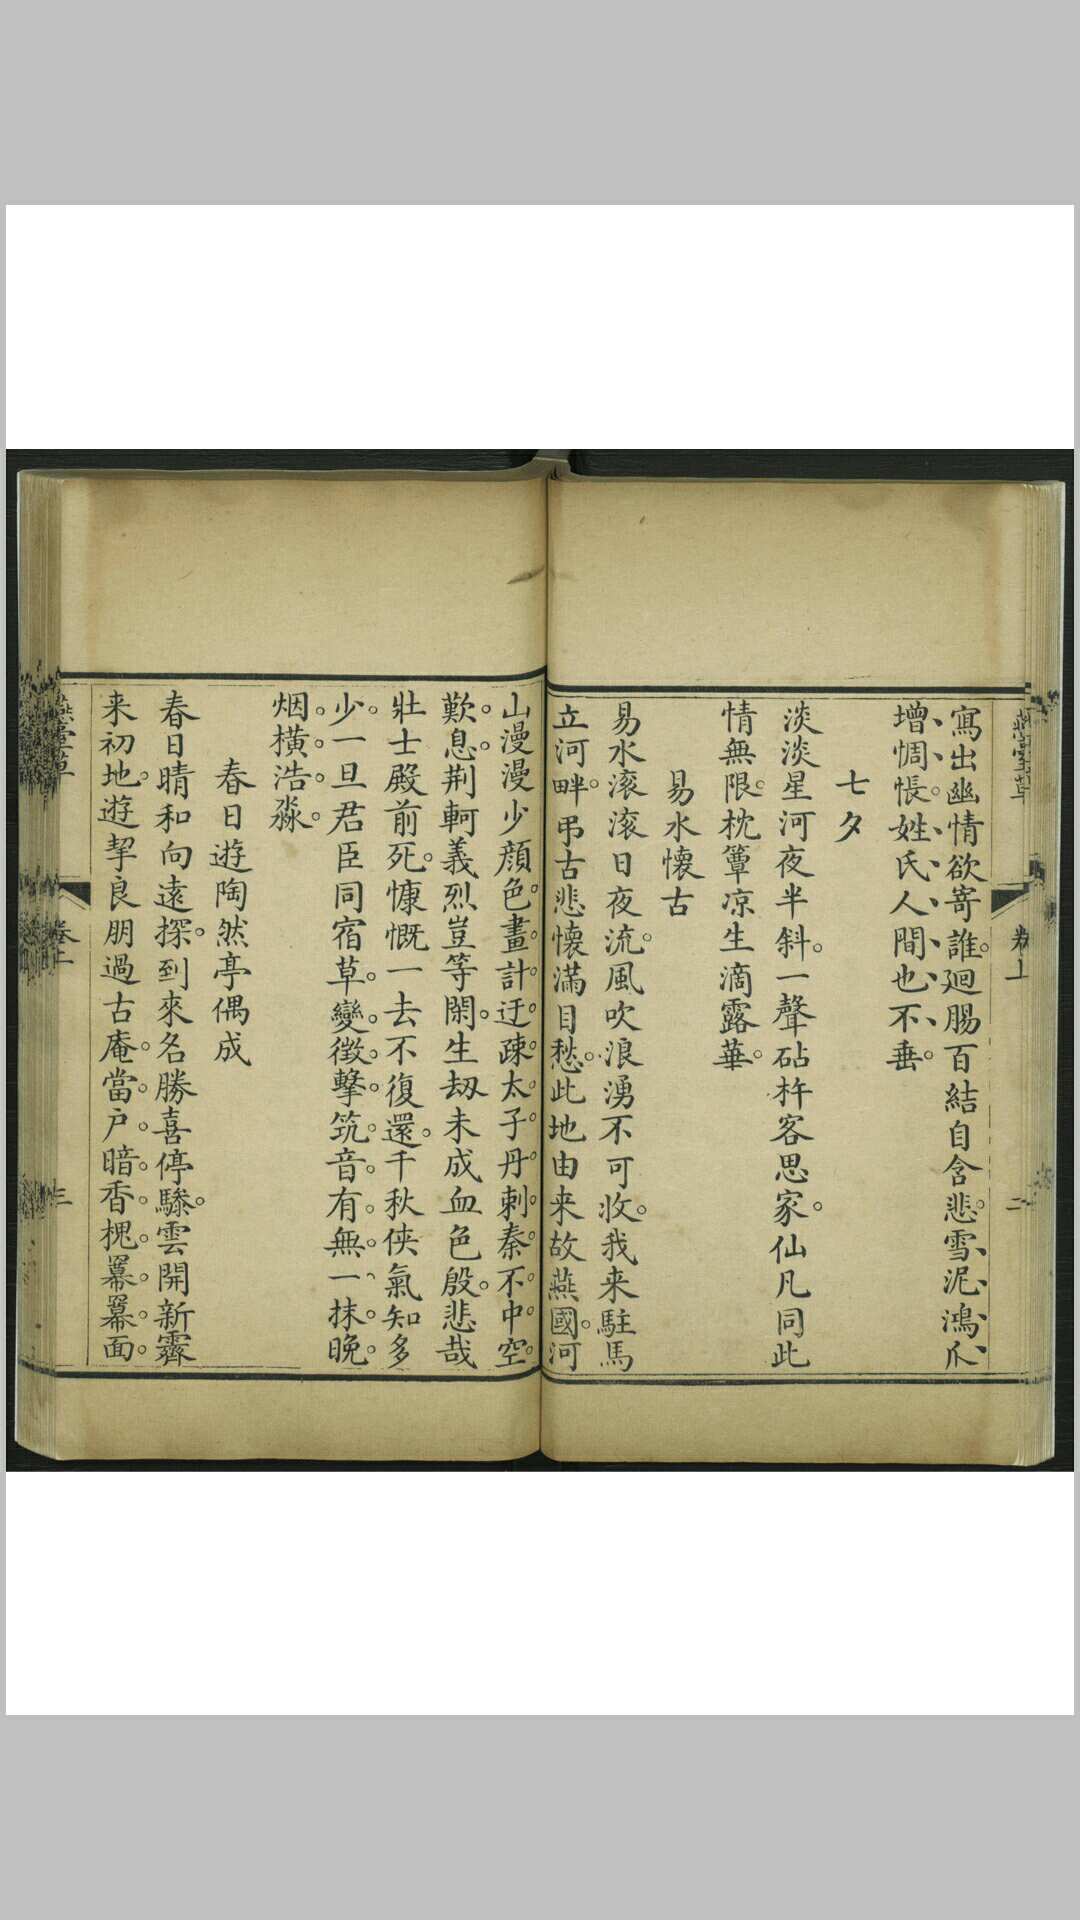 寫出幽情欲寄誰廻腸百結自含悲雪泥鴻爪
增惆悵姓氏人間也不垂
七夕
淡淡星河夜半斜一聲砧杵客思家仙凡同此
情無限枕簟凉生滴露華
易水懷古
易水滚滚日夜流風吹浪湧不可收我来駐馬
立河畔弔古悲懷滿目愁此地由来故燕國河
山漫漫少顔色畫計迂疎太子丹刺秦不中空
歎息荆軻義烈豈等閑生刼未成血色殷悲哉
壯士殿前死慷慨一去不復還千秋俠氣知多
少一旦君臣同宿草變徵擊筑音有無一抹晚
烟橫浩淼
春日遊陶然亭偶成
春日晴和向遠探到來名勝喜停驂雲開新霽
来初地遊挈良朋過古庵當户暗香槐羃羃面
卷上
二
卷上
三